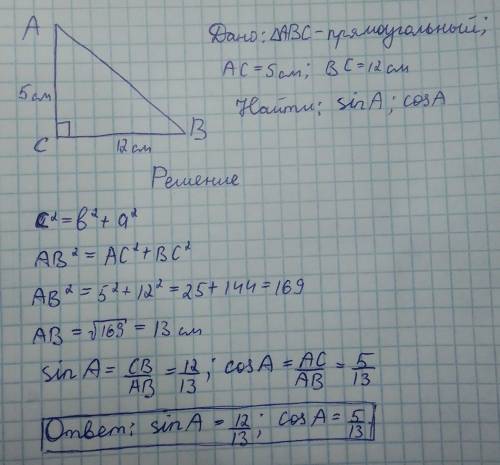 A
5 см
C
12 см
B
Дано: ΔABC - прямоугольный;
AC = 5 см; BC = 12 см
Найти: sin A; cos A
Решение
c² = b² + a²
AB² = AC² + BC²
AB² = 5² + 12² = 25 + 144 = 169
AB = √169 = 13 см
sin A = CB/AB = 12/13; cos A = AC/AB = 5/13
Ответ: sin A = 12/13; cos A = 5/13.